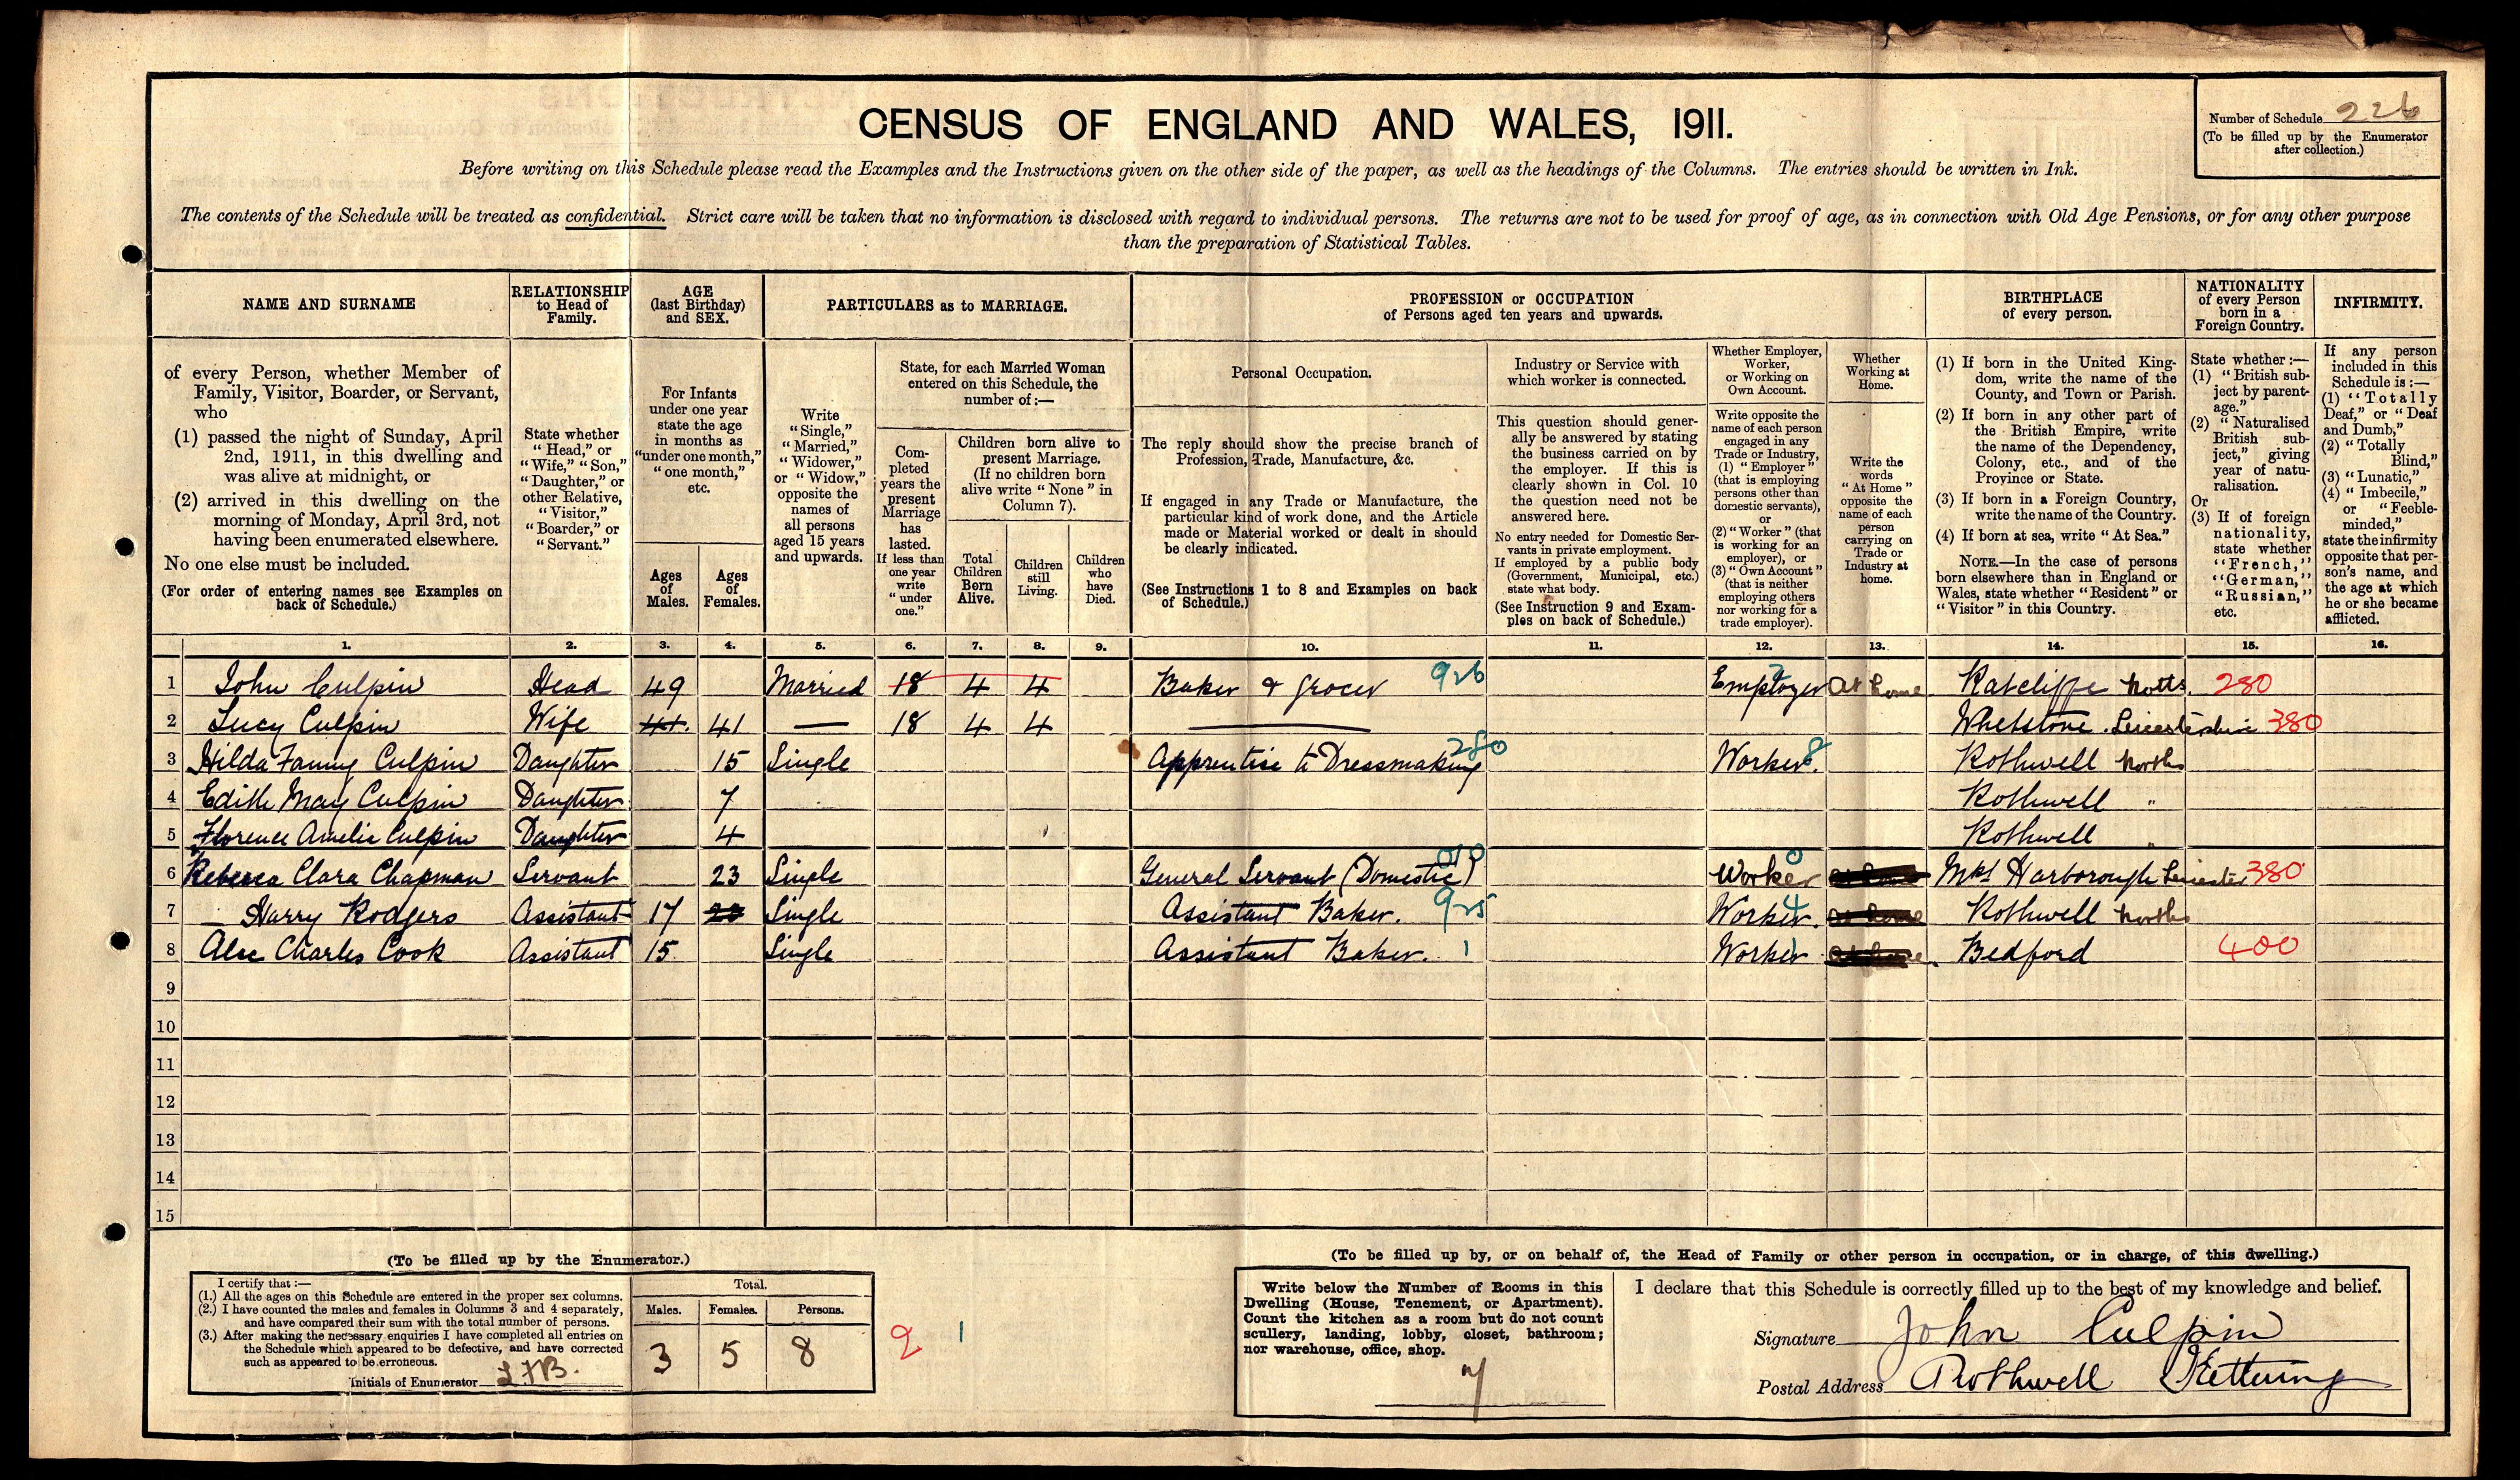 CENSUS OF ENGLAND AND WALES, 1911.
Number of Schedule 226
(To be filled up by the Enumerator
after collection.)
Before writing on this Schedule please read the Examples and the Instructions given on the other side of the paper, as well as the headings of the Columns. The entries should be written in Ink.
The contents of the Schedule will be treated as confidential. Strict care will be taken that no information is disclosed with regard to individual persons. The returns are not to be used for proof of age, as in connection with Old Age Pensions, or for any other purpose
than the preparation of Statistical Tables.
NAME AND SURNAME
RELATIONSHIP
to Head of
Family.
AGE
(last Birthday)
and SEX.
PARTICULARS as to MARRIAGE.
PROFESSION or OCCUPATION
of Persons aged ten years and upwards.
BIRTHPLACE
of every person.
NATIONALITY
of every Person
born in a
Foreign Country.
INFIRMITY.
of every Person, whether Member of
Family, Visitor, Boarder, or Servant,
who
(1) passed the night of Sunday, April
2nd, 1911, in this dwelling and
was alive at midnight, or
(2) arrived in this dwelling on the
morning of Monday, April 3rd, not
having been enumerated elsewhere.
No one else must be included.
(For order of entering names see Examples on
back of Schedule.)
State whether
"Head," or
"Wife," "Son,"
"Daughter," or
other Relative,
"Visitor,"
"Boarder," or
"Servant."
For Infants
under one year
state the age
in months as
"under one month,"
"one month,"
etc.
Ages
of
Males.
Ages
of
Females.
Write
"Single,"
"Married,"
"Widower,"
or "Widow,"
opposite the
names of
all persons
aged 15 years
and upwards.
State, for each Married Woman
entered on this Schedule, the
number of:—
Com-
pleted
years the
present
Marriage
has
lasted.
If less than
one year
write
"under
one."
Children born alive to
present Marriage.
(If no children born
alive write "None" in
Column 7).
Total
Children
Born
Alive.
Children
still
Living.
Children
who
have
Died.
Personal Occupation.
The reply should show the precise branch of
Profession, Trade, Manufacture, &c.
If engaged in any Trade or Manufacture, the
particular kind of work done, and the Article
made or Material worked or dealt in should
be clearly indicated.
(See Instructions 1 to 8 and Examples on back
of Schedule.)
Industry or Service with
which worker is connected.
This question should gener-
ally be answered by stating
the business carried on by
the employer. If this is
clearly shown in Col. 10
the question need not be
answered here.
No entry needed for Domestic Ser-
vants in private employment.
If employed by a public body
(Government, Municipal, etc.)
state what body.
(See Instruction 9 and Exam-
ples on back of Schedule.)
Whether Employer,
Worker,
or Working on
Own Account.
Write opposite the
name of each person
engaged in any
Trade or Industry,
(1) "Employer"
(that is employing
persons other than
domestic servants),
or
(2) "Worker" (that
is working for an
employer), or
(3) "Own Account"
(that is neither
employing others
nor working for a
trade employer).
Whether
Working at
Home.
Write the
words
"At Home"
opposite the
name of each
person
carrying on
Trade or
Industry at
home.
(1) If born in the United King-
dom, write the name of the
County, and Town or Parish.
(2) If born in any other part of
the British Empire, write
the name of the Dependency,
Colony, etc., and of the
Province or State.
(3) If born in a Foreign Country,
write the name of the Country.
(4) If born at sea, write "At Sea."
NOTE.—In the case of persons
born elsewhere than in England or
Wales, state whether "Resident" or
"Visitor" in this Country.
State whether:—
(1) "British sub-
ject by parent-
age."
(2) "Naturalised
British sub-
ject," giving
year of natu-
ralisation.
Or
(3) If of foreign
nationality,
state whether
"French,"
"German,"
"Russian,"
etc.
If any person
included in this
Schedule is:—
(1) "Totally
Deaf," or "Deaf
and Dumb,"
(2) "Totally
Blind,"
(3) "Lunatic,"
(4) "Imbecile,"
or "Feeble-
minded,"
state the infirmity
opposite that per-
son's name, and
the age at which
he or she became
afflicted.
1. 2. 3. 4. 5. 6. 7. 8. 9. 10. 11. 12. 13. 14. 15. 16.
1 John Culpin Head 49 Married 18 4 4 Baker & Grocer 926 Employer At home Ratcliffe Notts. 280
2 Lucy Culpin Wife 41. 41 — 18 4 4 — Whetstone. Leicestershire 380
3 Hilda Fanny Culpin Daughter 15 Single Apprentice to Dressmaking 280 Worker. 8 Rothwell Norths
4 Edith May Culpin Daughter 7 Rothwell "
5 Florence Amelia Culpin Daughter 4 Rothwell "
6 Rebecca Clara Chapman Servant 23 Single General Servant (Domestic) 010 Worker 0 Mkt Harborough Leicester 380
7 Harry Rodgers Assistant 17 23 Single Assistant Baker. 925 Worker. 4 Rothwell Norths
8 Alec Charles Cook Assistant 15 Single Assistant Baker. 1 Worker. Bedford 400
9
10
11
12
13
14
15
(To be filled up by the Enumerator.)
I certify that:—
(1.) All the ages on this Schedule are entered in the proper sex columns.
(2.) I have counted the males and females in Columns 3 and 4 separately,
and have compared their sum with the total number of persons.
(3.) After making the necessary enquiries I have completed all entries on
the Schedule which appeared to be defective, and have corrected
such as appeared to be erroneous.
Initials of Enumerator
Total.
Males. Females. Persons.
3 5 8
2 1
(To be filled up by, or on behalf of, the Head of Family or other person in occupation, or in charge, of this dwelling.)
Write below the Number of Rooms in this
Dwelling (House, Tenement, or Apartment).
Count the kitchen as a room but do not count
scullery, landing, lobby, closet, bathroom;
nor warehouse, office, shop.
7
I declare that this Schedule is correctly filled up to the best of my knowledge and belief.
Signature John Culpin
Postal Address Rothwell Kettering